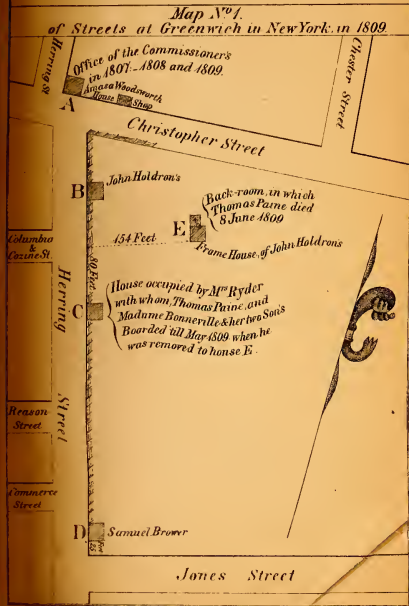 Map Nº 1.
of Streets at Greenwich in New York, in 1809.
Herring St
Office of the Commissioner's
in 1807-1808 and 1809.
Amasa Woodsworth
House Shop
A
Chester Street
Christopher Street
B
John Holdron's
Back-room, in which
Thomas Paine died
8 June 1809
E
154 Feet
Frame House, of John Holdron's
Columbia
&
Cozine St.
80 Feet
C
House occupied by Mrs Ryder
with whom, Thomas Paine, and
Madame Bonneville & her two Son's
Boarded 'till May 1809 when he
was removed to house E.
Herring
Street
Reason
Street
Commerce
Street
D
Samuel Brower
25 Feet
Jones Street